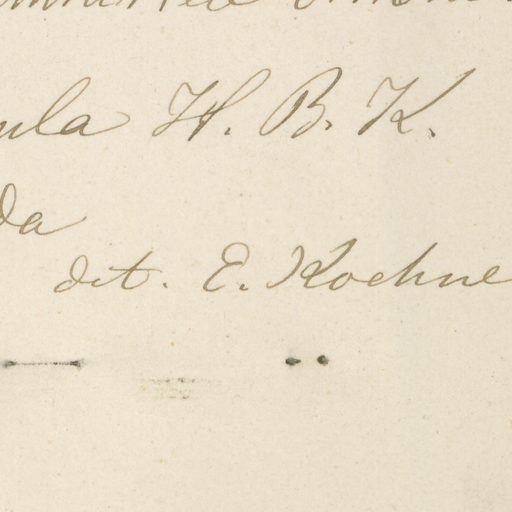 ula H. B. K.
da
det. E. Koehne